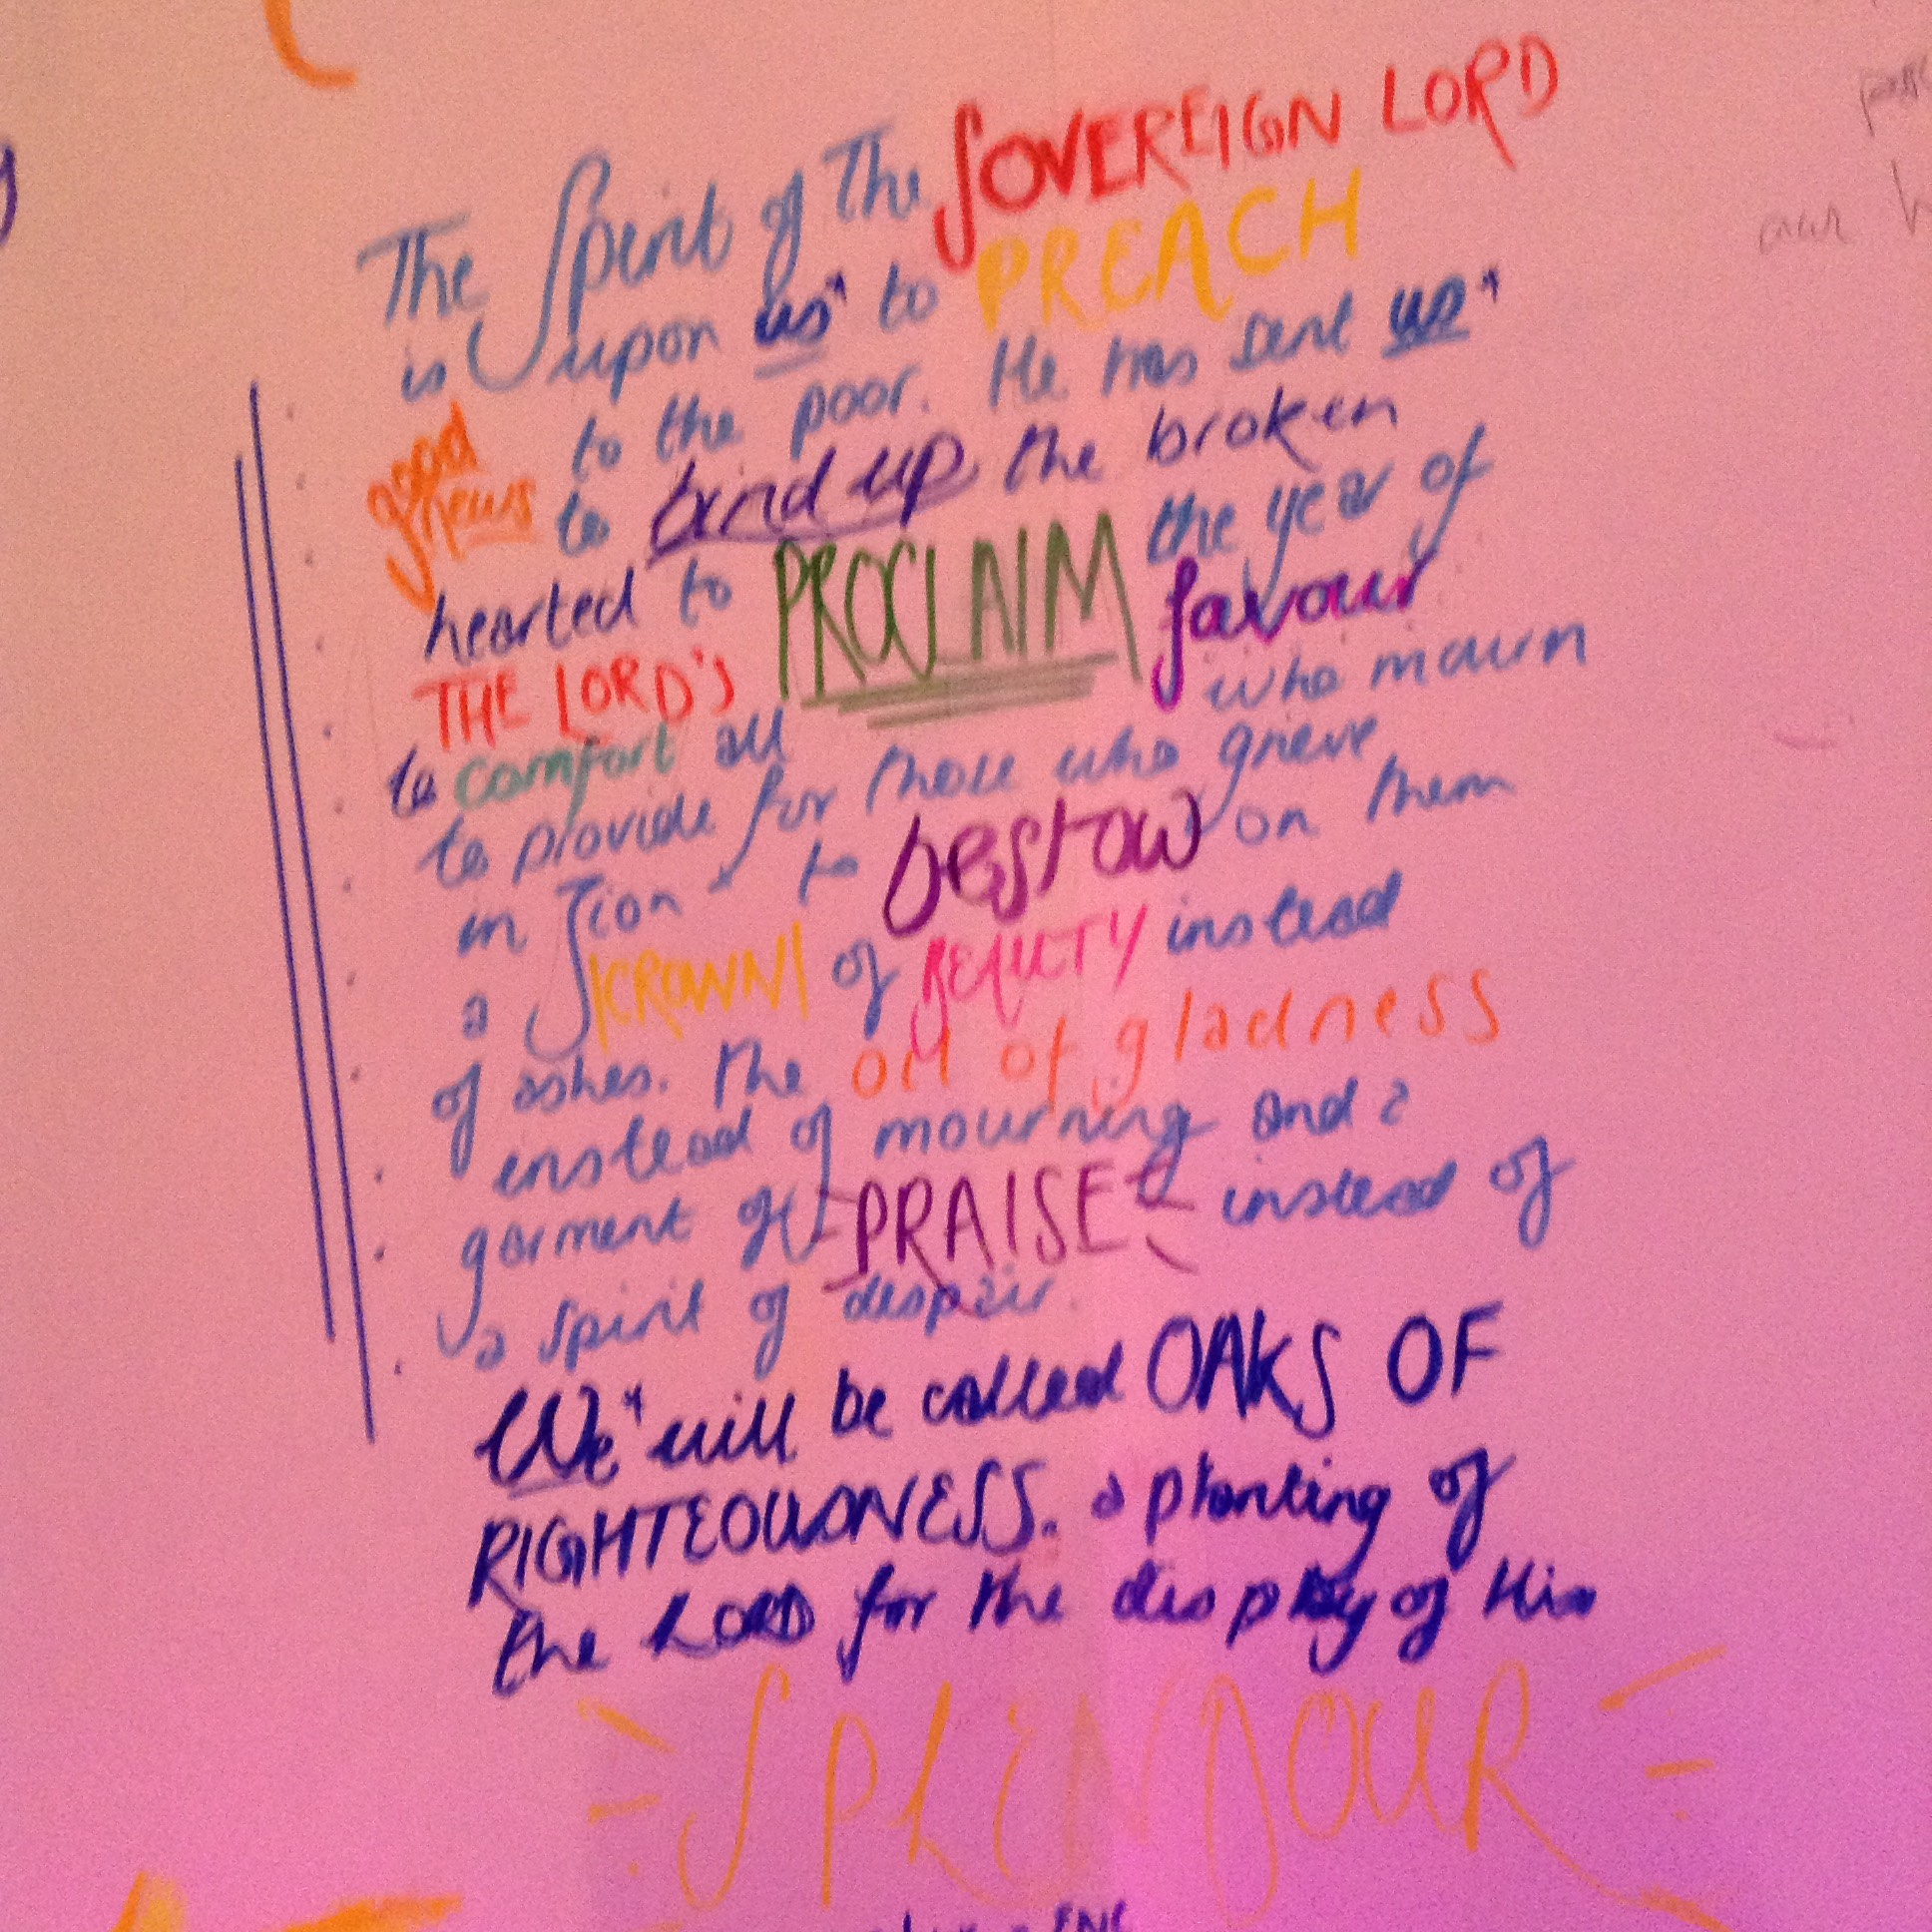 The Spirit of The SOVEREIGN LORD
is upon us* to PREACH
good news to the poor. He has sent us*
to bind up the broken
hearted to PROCLAIM the year of
THE LORD'S favour
to comfort all who mourn
to provide for those who grieve
in Zion to bestow on them
a CROWN of BEAUTY instead
of ashes. The oil of gladness
instead of mourning and a
garment of PRAISE instead of
a spirit of despair.
We* will be called OAKS OF
RIGHTEOUSNESS. a planting of
the LORD for the display of His
SPLENDOUR
our